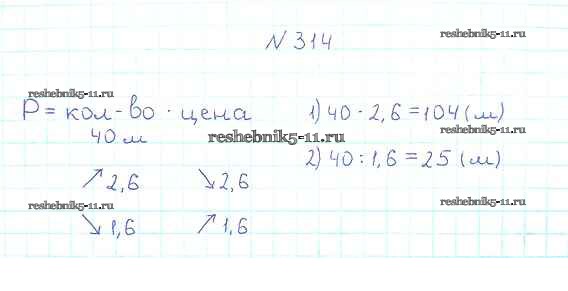 N 314
reshebnik5-11.ru
reshebnik5-11.ru
P = кол-во · цена
40 м
1) 40 · 2,6 = 104 (м)
reshebnik5-11.ru
2) 40 : 1,6 = 25 (м)
↗ 2,6 ↘ 2,6
reshebnik5-11.ru
reshebnik5-11.ru
↘ 1,6 ↗ 1,6